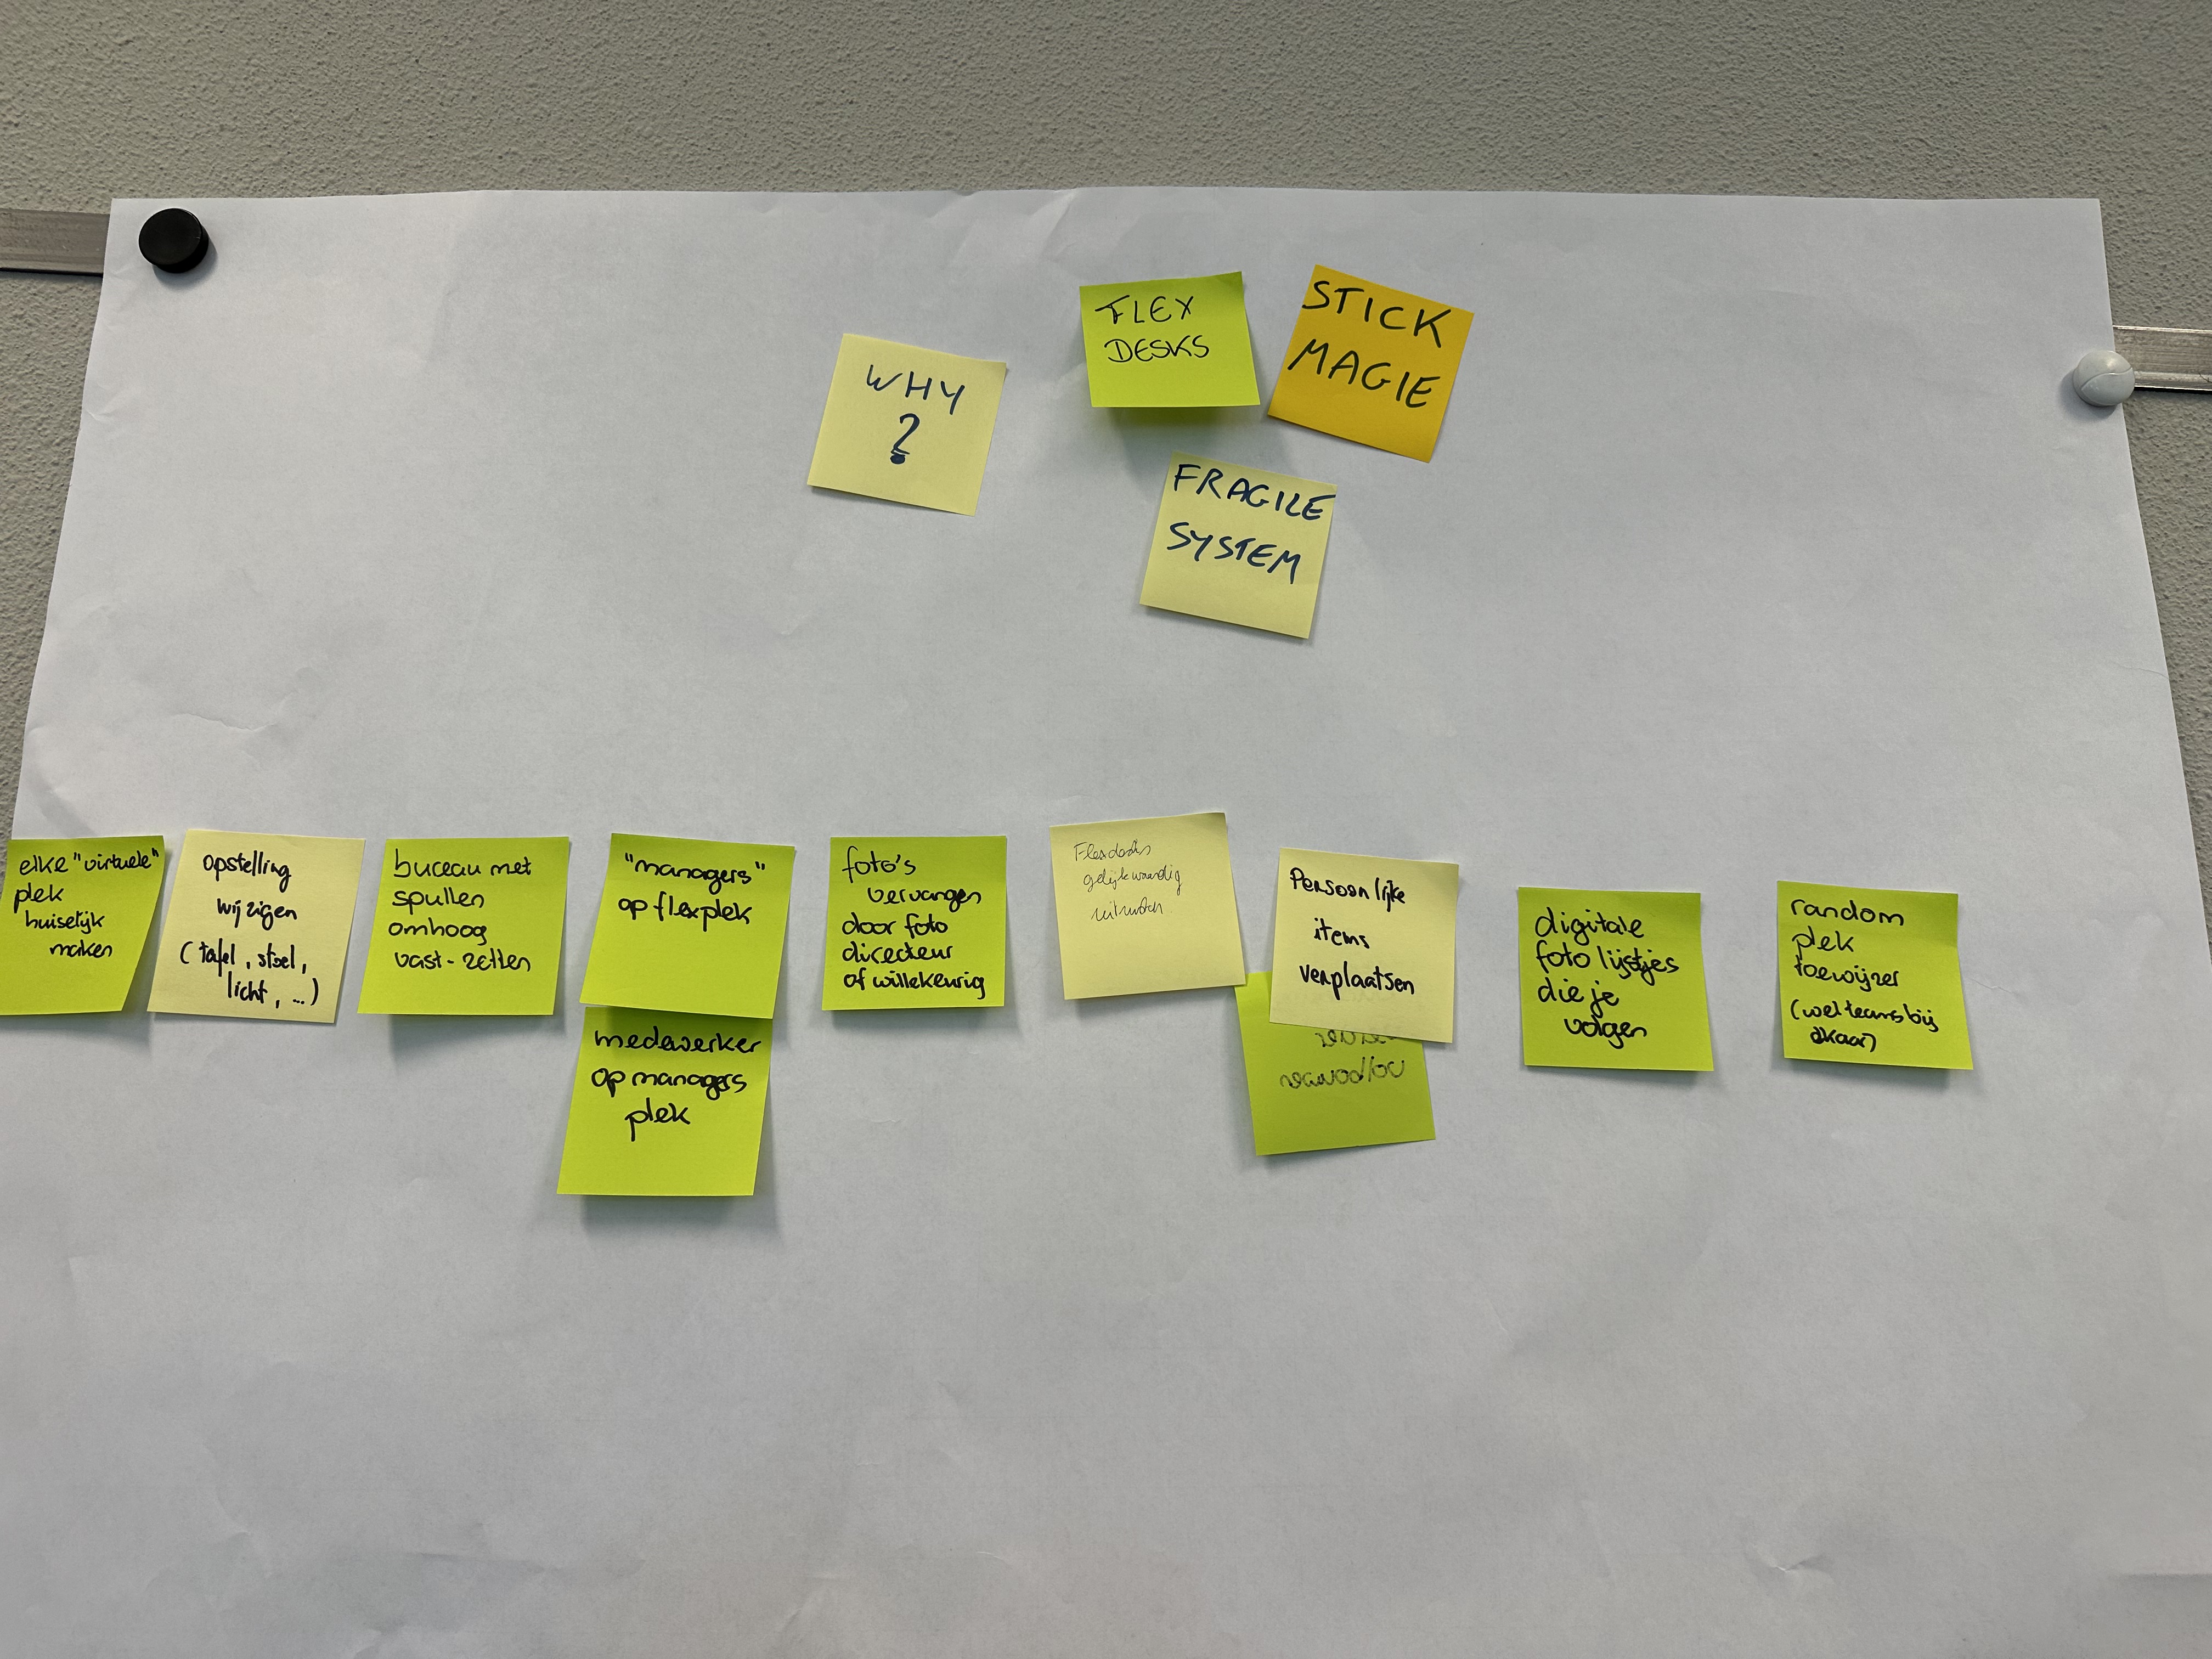 WHY
?
FLEX
DESKS
STICK
MAGIE
FRAGILE
SYSTEM
elke "virtuele"
plek
huiselijk
maken
opstelling
wijzigen
(tafel, stoel,
licht, ...)
bureau met
spullen
omhoog
vast-zetten
"managers"
op flexplek
medewerker
op managers
plek
foto's
vervangen
door foto
directeur
of willekeurig
gelijkwaardig
Persoonlijke
items
verplaatsen
digitale
foto lijstjes
die je
volgen
random
plek
toewijzer
(wel teams bij
elkaar)